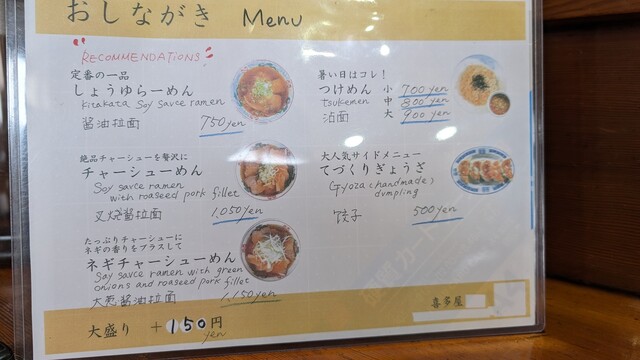 おしながき Menu
RECOMMENDATIONS
定番の一品
しょうゆらーめん
Kitakata Soy savce ramen
醤油拉面 750yen
絶品チャーシューを贅沢に
チャーシューめん
Soy savce ramen
with roaseed pork fillet
叉焼醤拉面 1,050yen
たっぷりチャーシューに
ネギの香りをプラスして
ネギチャーシューめん
Soy savce ramen with green
onions and roaseed pork fillet
大葱醤油拉面 1,150yen
大盛り +150円
yen
暑い日はコレ!
つけめん 小 700yen
tsukemen 中 800yen
沾面 大 900yen
大人気サイドメニュー
てづくりぎょうざ
Gyoza(handmade)
dvmpling
餃子 500yen
喜多屋